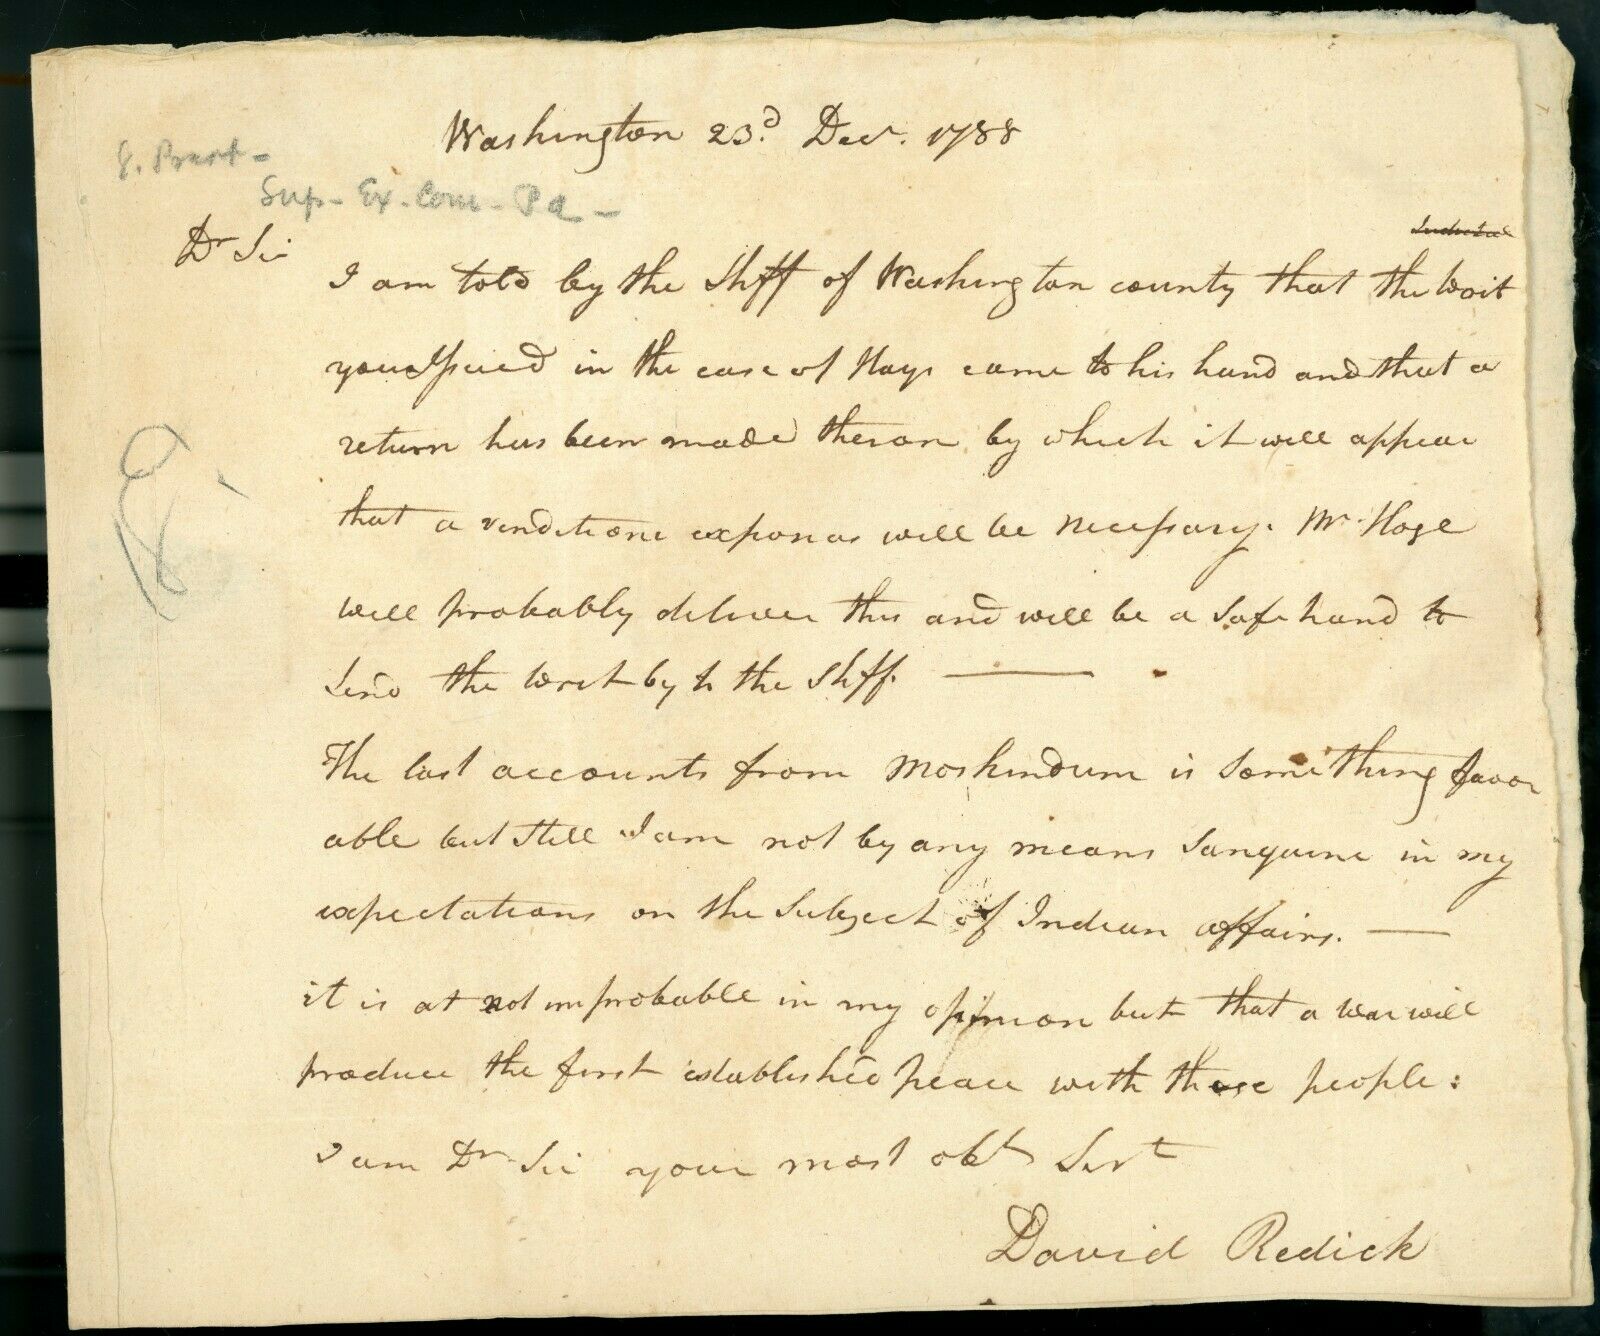 Washington 23.d Decr. 1788
Sup- Ex. Com- Pa-
Dr Sir
I am told by the Shff of Washington county that the writ
you Issued in the case of Hays came to his hand and that a
return has been made theron by which it will appear
that a venditioni exponas will be necessary. Mr. Hoge
will probably deliver this and will be a safe hand to
send the writ by to the Shff. —
The last accounts from Moskindum is something favor
able but still I am not by any means sanguine in my
expectations on the subject of Indian affairs. —
it is at not improbable in my opinion but that a war will
produce the first established peace with these people:
I am Dr Sir your most obt Servt
David Redick